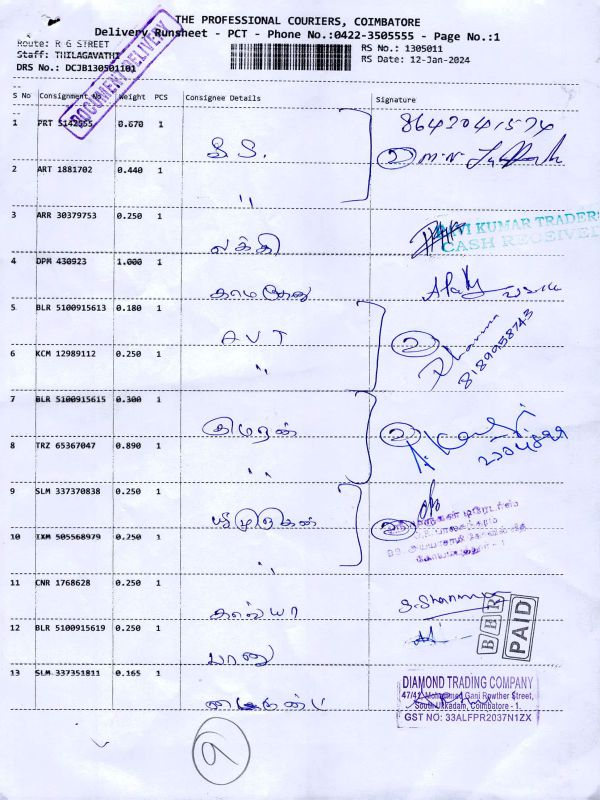 THE PROFESSIONAL COURIERS, COIMBATORE
Delivery Runsheet - PCT - Phone No.:0422-3505555 - Page No.:1
Route: R G STREET
Staff: THILAGAVATHI
DRS No.: DCJB130501101
RS No.: 1305011
RS Date: 12-Jan-2024
DOCUMENT DELIVERY
S No Consignment No. Weight PCS Consignee Details Signature
1 PRT 5142555 0.670 1 S.S. 8643041574
2 ART 1881702 0.440 1 " 2 M.N.
3 ARR 30379753 0.250 1 லக்கி
KUMAR TRADERS
CASH RECEIVED
4 DPM 430923 1.000 1 காமதேனு
5 BLR 5100915613 0.180 1 A V T 2
8189958743
6 KCM 12989112 0.250 1 "
7 BLR 5100915615 0.300 1 குமரன் 2
8 TRZ 65367047 0.890 1 "
9 SLM 337370838 0.250 1 ஸ்ரீமுருகன் 2
10 IXM 505568979 0.250 1 "
11 CNR 1768628 0.250 1 காவ்யா
12 BLR 5100915619 0.250 1 பானு
BHR
PAID
13 SLM 337351811 0.165 1
DIAMOND TRADING COMPANY
47/41, Mohammed Gani Rowther Street,
South Ukkadam, Coimbatore - 1.
GST NO: 33ALFPR2037N1ZX
9